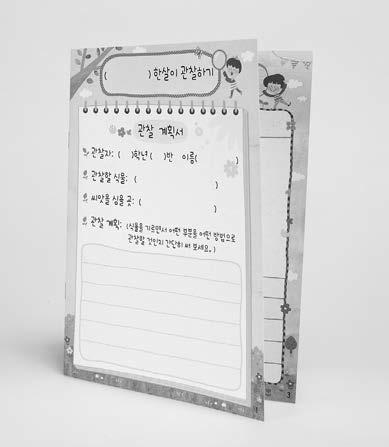 (          ) 한살이 관찰하기
관찰 계획서
관찰자: (   )학년 (   )반 이름(          )
관찰할 식물: (                    )
씨앗을 심을 곳: (                    )
관찰 계획: (식물을 기르면서 어떤 부분을 어떤 방법으로
관찰할 것인지 간단히 써 보세요.)
1
3